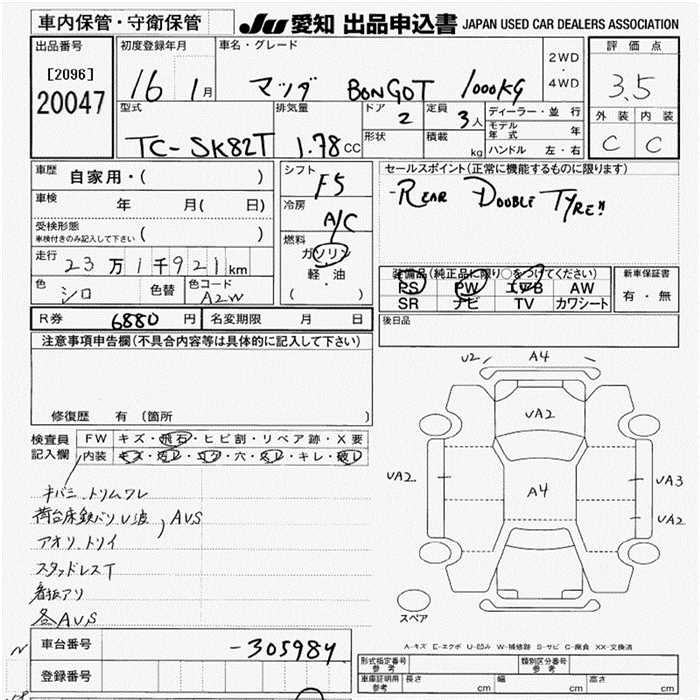 車内保管・守衛保管 JU 愛知 出品申込書 JAPAN USED CAR DEALERS ASSOCIATION
出品番号 初度登録年月 車名・グレード 2WD・4WD 評価点
[2096] 16 1月 マツダ BONGOT 1000KG 3.5
20047
型式 排気量 ドア 2 定員 3人 ディーラー・並行 外装 内装
モデル年式 年
TC-SK82T 1.78CC 形状 積載 kg ハンドル 左・右 C C
車歴 自家用・( ) シフト F5 セールスポイント(正常に機能するものに限ります)
車検 年 月( 日) 冷房 A/C -REAR DOUBLE TYRE"
受検形態 ( )
車検付きのみ記入して下さい
燃料 ガソリン
走行 23万1千921km 軽・油
( )
装備品(純正品に限り○をつけてください) 新車保証書
色 シロ 色替 色コード A2W PS PW エアB AW 有・無
SR ナビ TV カワシート
R券 6880円 名変期限 月 日 後日品
注意事項申告欄(不具合内容等は具体的に記入して下さい)
修復歴 有 (箇所
検査員記入欄 FW キズ・飛石・ヒビ割・リペア跡・X要
内装 キズ・汚レ・コゲ・穴・スレ・キレ・破レ
U2 A4
UA2
UA2 A4 UA3
UA2
スペア
キバミ、トリムワレ
荷台床鉄バリU波, AUS
アオリ、トリイ
スタッドレスT
看板アリ
各AUS
A-キズ E-エクボ U-凹み W-補修跡 S-サビ C-腐食 XX-交換済
車台番号 -305984 型式指定番号 参考 類別区分番号 参考
登録番号 車庫証明用参考 長さ cm 幅 cm 高さ cm